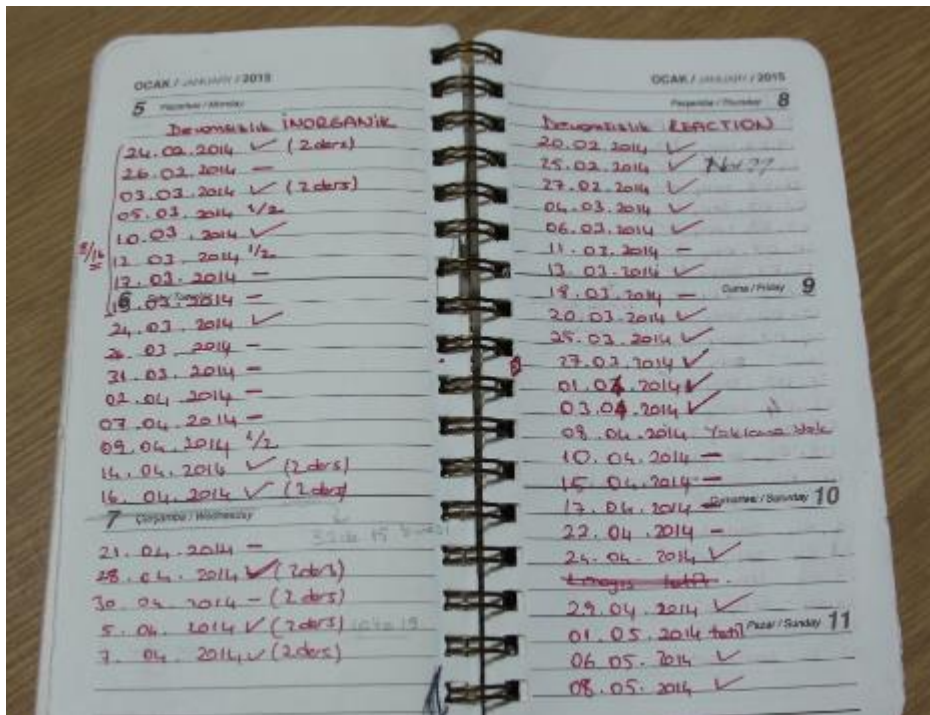 OCAK / JANUARY / 2015
5 Pazartesi / Monday
Devamsızlık İNORGANİK
24.02.2014 ✓ (2 ders)
26.02.2014 –
03.03.2014 ✓ (2 ders)
05.03.2014 1/2
10.03.2014 ✓
12.03.2014 1/2
17.03.2014 –
6
19.03.2014 –
24.03.2014 ✓
26.03.2014 –
31.03.2014 –
02.04.2014 –
07.04.2014 –
09.04.2014 1/2
14.04.2014 ✓ (2 ders)
16.04.2014 ✓ (2 ders)
7 Çarşamba / Wednesday
21.04.2014 –
28.04.2014 ✓ (2 ders)
30.04.2014 – (2 ders)
5.04.2014 ✓ (2 ders)
7.04.2014 ✓ (2 ders)
OCAK / JANUARY / 2015
Perşembe / Thursday 8
Devamsızlık REACTION
20.02.2014 ✓
25.02.2014 ✓
27.02.2014 ✓
04.03.2014 ✓
06.03.2014 ✓
11.03.2014 –
13.03.2014 ✓
18.03.2014 – Cuma / Friday 9
20.03.2014 ✓
25.03.2014 ✓
27.03.2014 ✓
01.04.2014 ✓
03.04.2014 ✓
08.04.2014 Yoklama Yok
10.04.2014 –
15.04.2014 –
17.04.2014 – Cumartesi / Saturday 10
22.04.2014 –
24.04.2014 ✓
1 mayıs tatil
29.04.2014 ✓
01.05.2014 tatil Pazar / Sunday 11
06.05.2014 ✓
08.05.2014 ✓